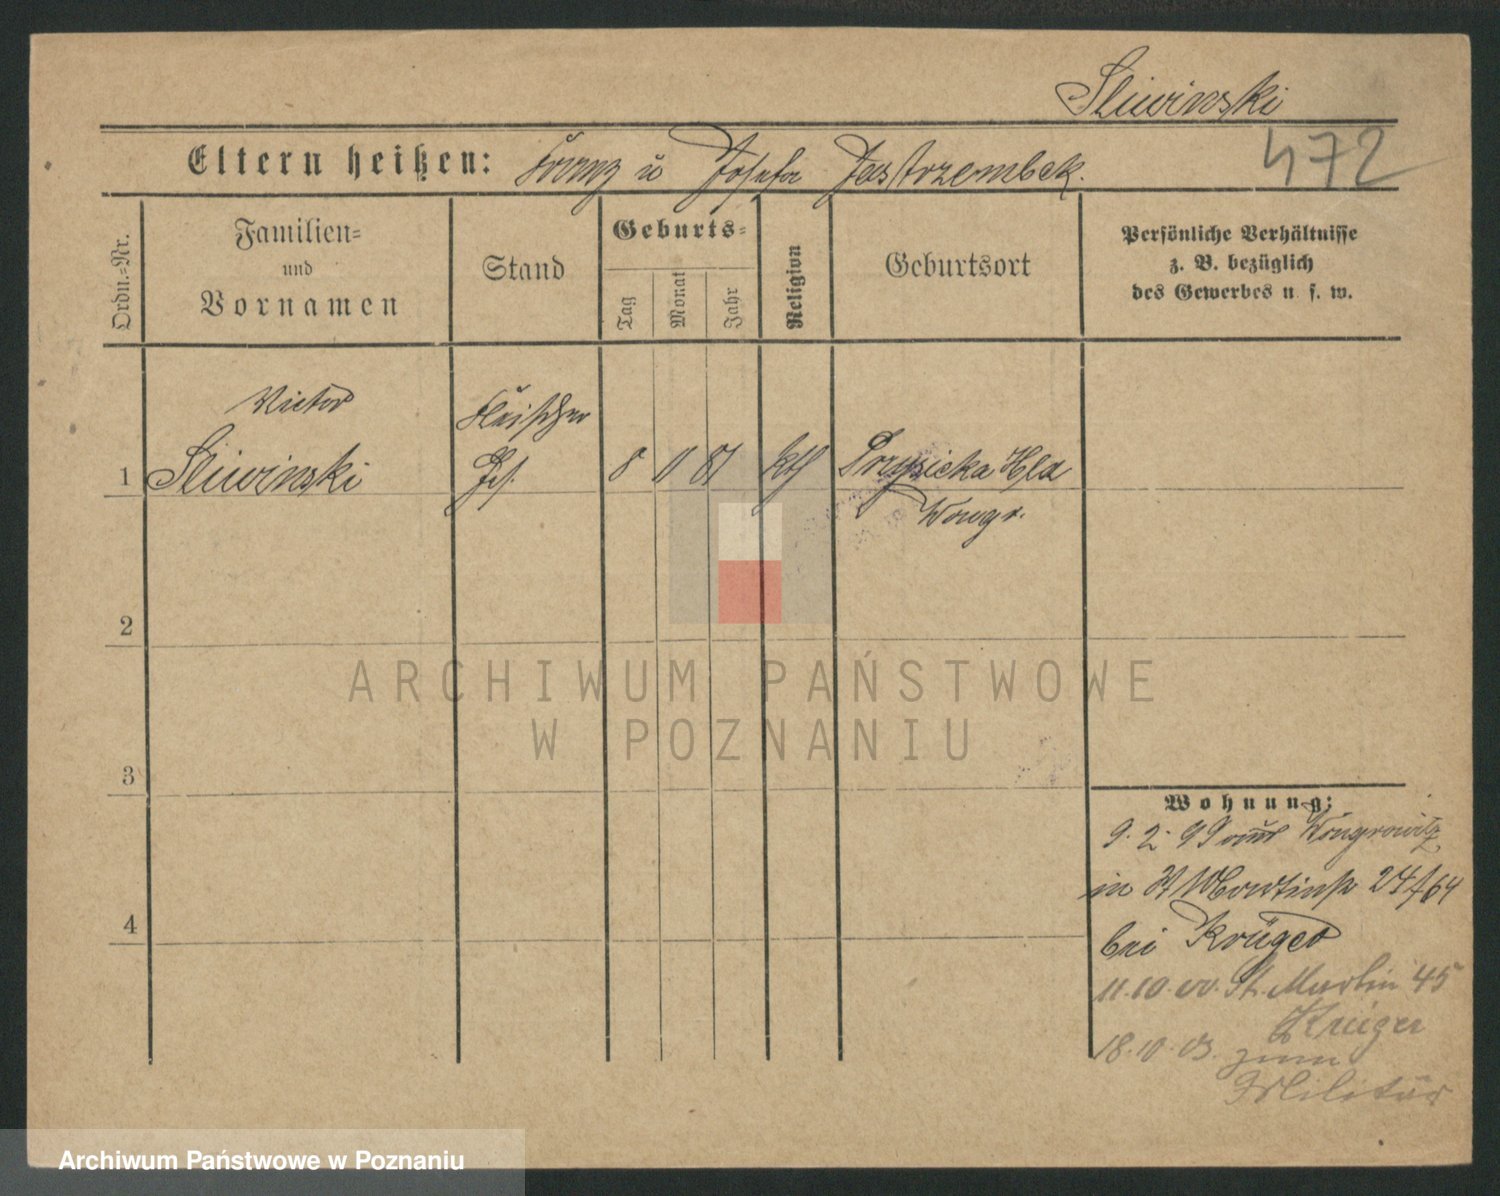 Sliwinski
Eltern heißen: Franz u Josefa Jastrzembek.
472
Ordn.=Nr.
Familien=
und
Vornamen
Stand
Geburts=
Tag
Monat
Jahr
Religion
Geburtsort
Persönliche Verhältnisse
z. B. bezüglich
des Gewerbes u. s. w.
Victor
Sliwinski
Fleischer
Ges.
1
8 11 81 kth Przysicka Hld
Wongr.
2
ARCHIWUM PAŃSTWOWE
W POZNANIU
3
4
Wohnung:
9. 2. 99 aus Wongrowitz
in St Martinstr 24/64
bei Krüger
11.10.00. St. Martin 45
Krüger
18.10.03. zum
Militär
Archiwum Państwowe w Poznaniu